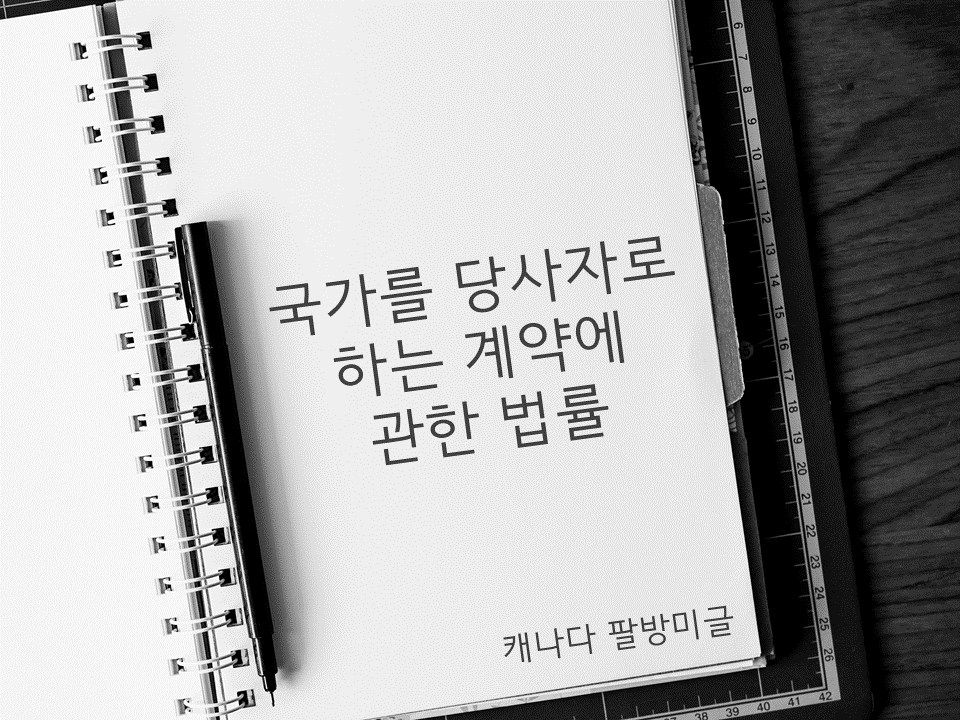 국가를 당사자로
하는 계약에
관한 법률
캐나다 팔방미글
6
7
8
9
10
11
12
13
14
15
16
17
18
19
20
21
22
23
24
25
26
37
38
39
40
41
42